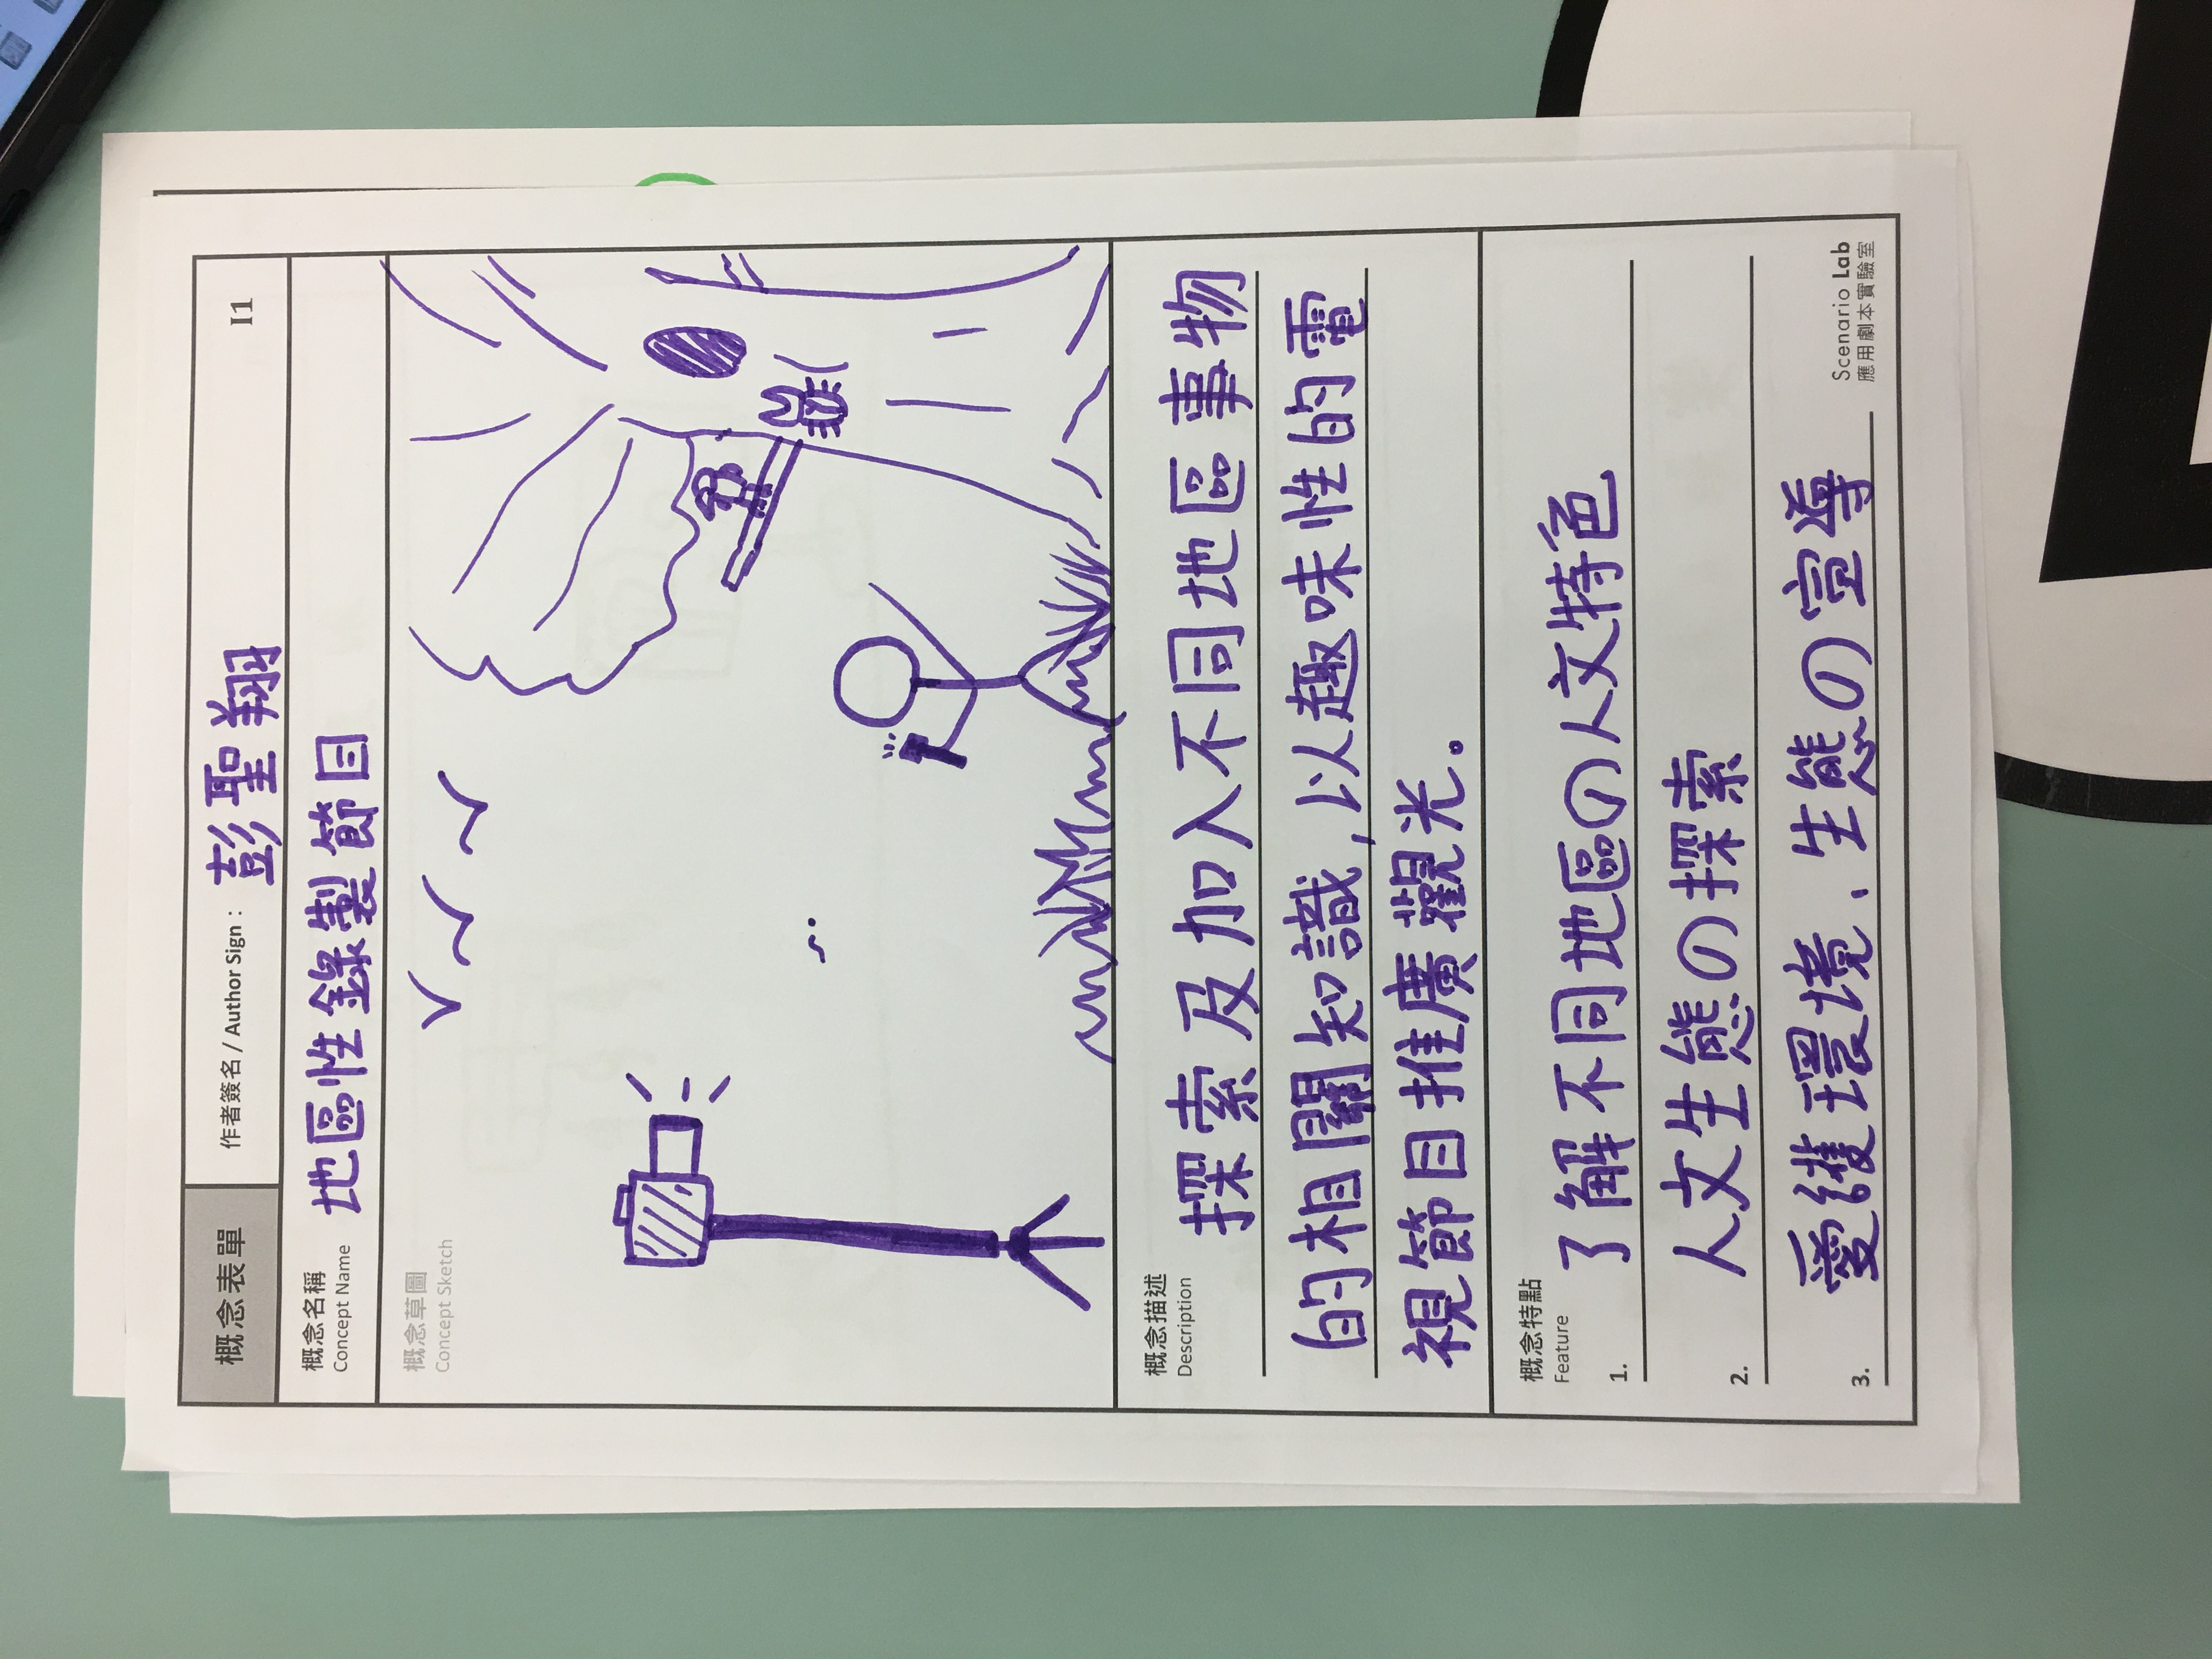 概念表單
作者簽名 / Author Sign：彭聖翔
I1
概念名稱
Concept Name
地區性錄製節目
概念草圖
Concept Sketch
概念描述
Description
探索及加入不同地區事物
的相關知識,以趣味性的電
視節目推廣觀光。
概念特點
Feature
1. 了解不同地區の人文特色
2. 人文生態の探索
3. 愛護環境、生態の宣導
Scenario Lab
應用劇本實驗室